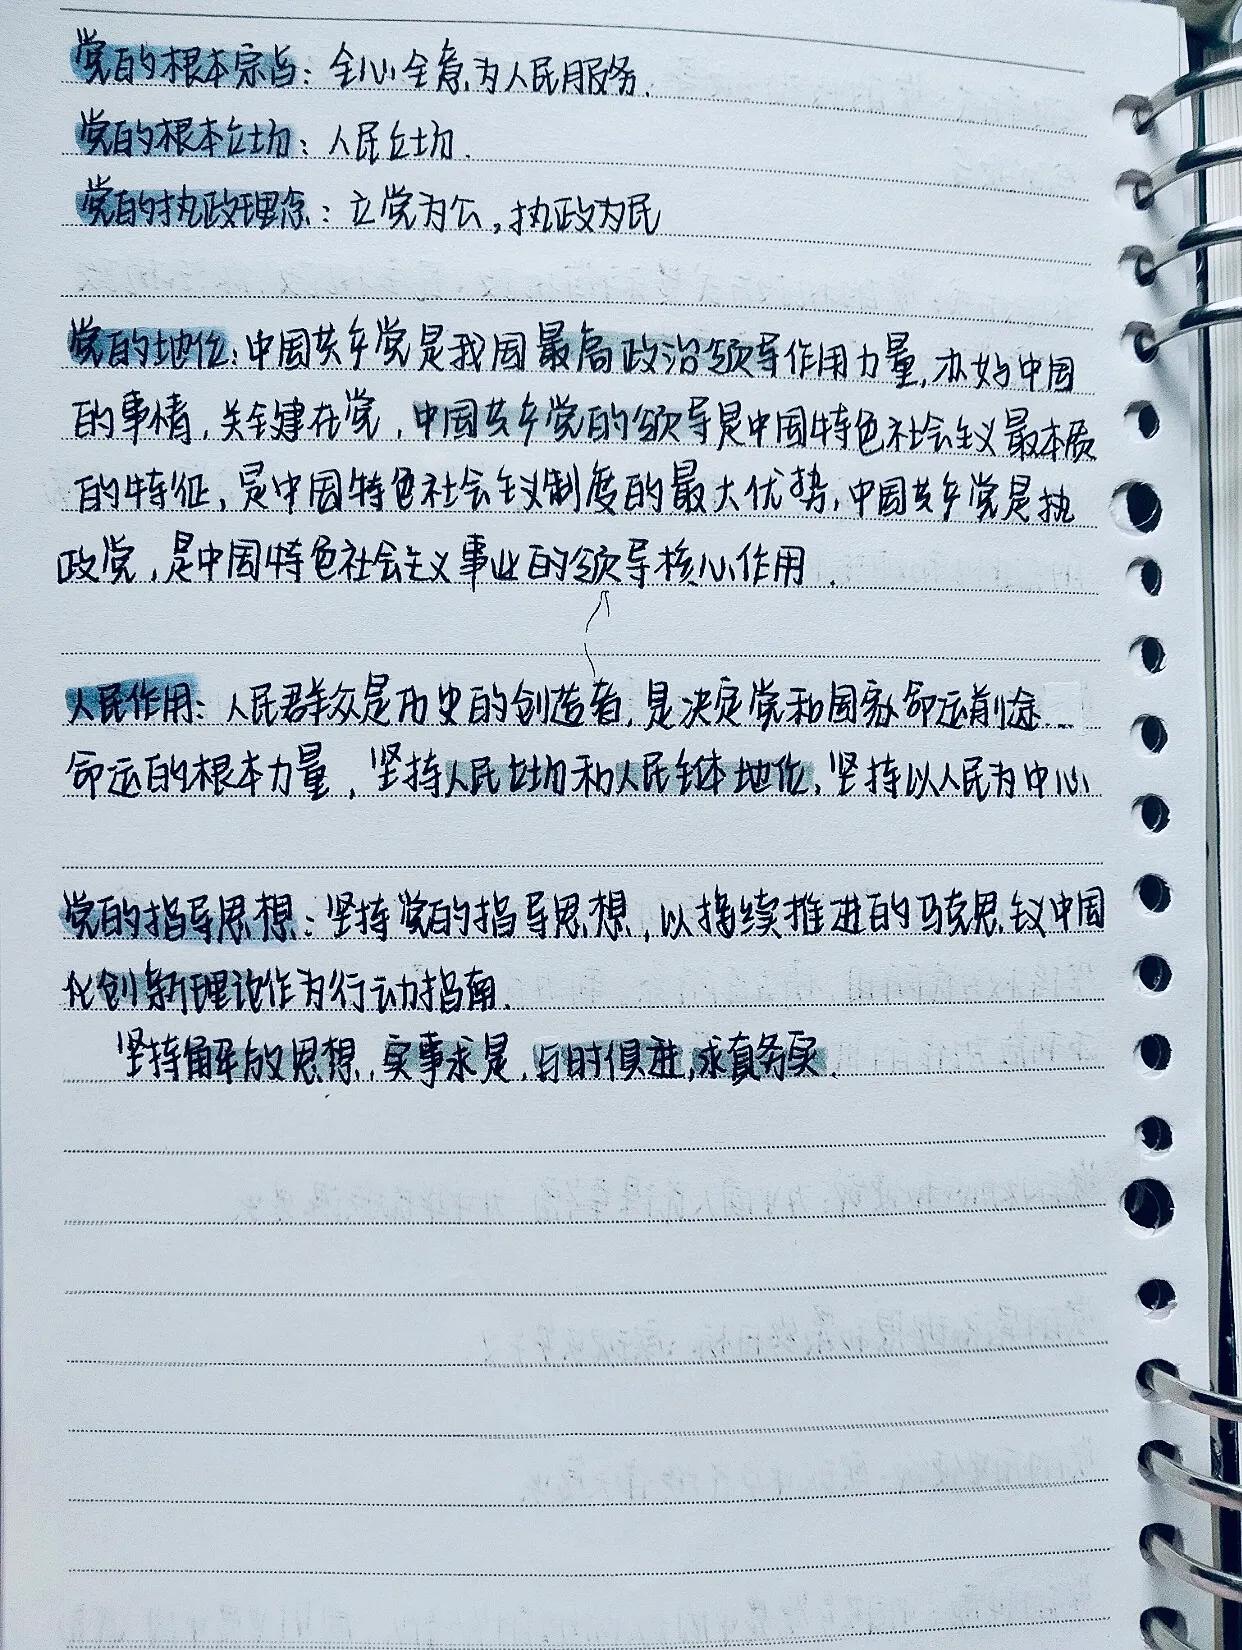 党的根本宗旨：全心全意为人民服务.
党的根本立场：人民立场.
党的执政理念：立党为公，执政为民
党的地位：中国共产党是我国最高政治领导作用力量，办好中国
的事情，关键在党，中国共产党的领导是中国特色社会主义最本质
的特征，是中国特色社会主义制度的最大优势，中国共产党是执
政党，是中国特色社会主义事业的领导核心作用.
人民作用：人民群众是历史的创造者，是决定党和国家命运前途
命运的根本力量，坚持人民立场和人民主体地位，坚持以人民为中心
党的指导思想：坚持党的指导思想，以接续推进的马克思主义中国
化创新理论作为行动指南.
坚持解放思想，实事求是，与时俱进，求真务实.